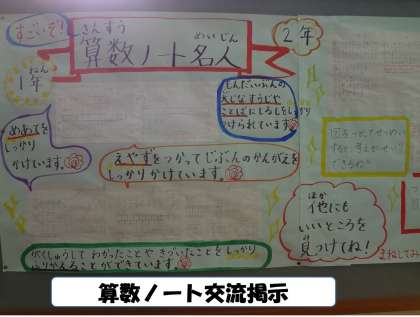 すごいぞ!
さんすう めいじん
算数ノート名人
1年
ねん
2年
もんだいぶんの
だいじなすうじや
ことばにしるしをしっかり
かけられています。
めあてを
しっかり
かけています。
えやずをつかってじぶんのかんがえを
しっかりかけています。
ほか
他にも
いいところを
み
見つけてね!
がくしゅうしてわかったことやきづいたことをしっかり
ふりかえることができています。
まねしてみ
算数ノート交流掲示